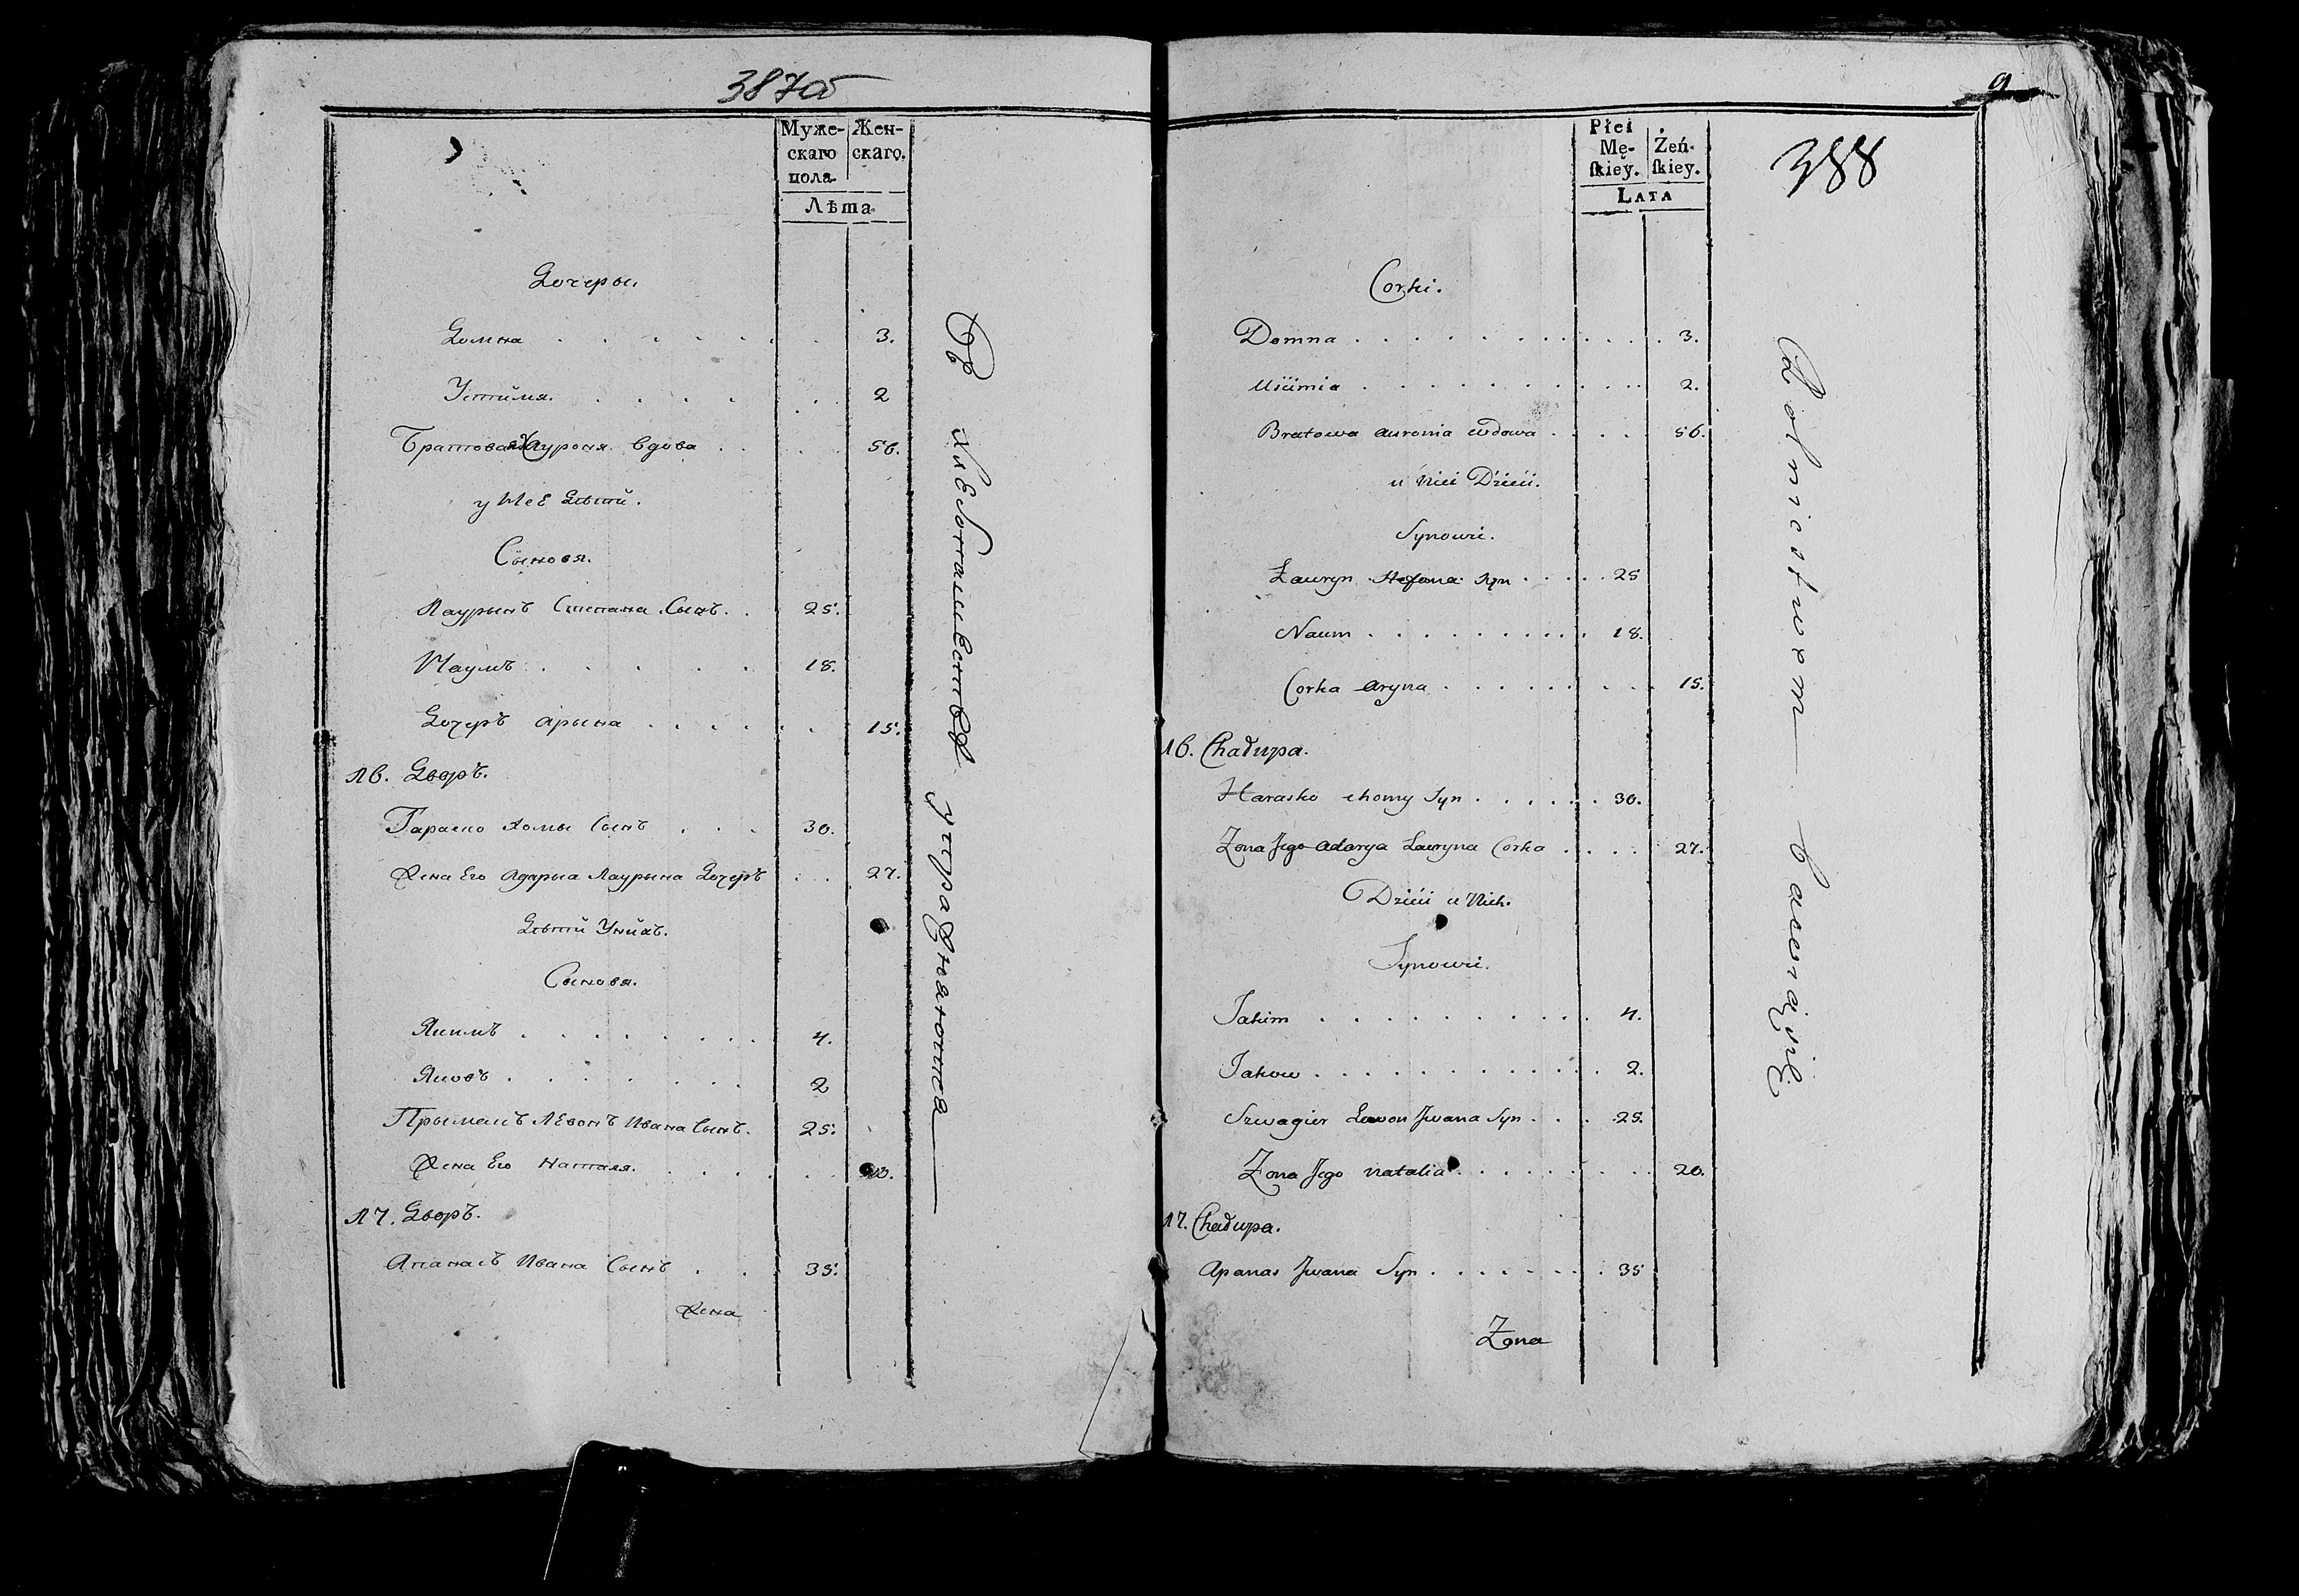 387об
Муже-
скаго
пола.
Жен-
скаго.
Лѣта
Дочеры.
Домна 3.
Устимя. 2
Братовая Ауроня вдова 56.
у Нее Дѣти.
Сыновя.
Лаурынъ Степана Сынъ. 25.
Наумъ 18.
Дочеръ Арына 15.
16. Дворъ.
Гараско Хомы Сынъ 30.
Жена Его Адарыа Лаурына Дочеръ 27.
Дѣти У нихъ.
Сыновя.
Якимъ 4.
Яковъ 2
Прымакъ Левонъ Ивана Сынъ. 25.
Жена Его Наталя. 20.
17. Дворъ.
Апанасъ Ивана Сынъ 35.
Жена
Въ хлебопашестве упражняются
9
388
Płci
Mę-
ſkiey.
Żeń-
ſkiey.
Lata
Corki.
Domna 3.
Uśćimia 2.
Bratowa Auronia wdowa 56.
u Niei Dzieci.
Synowie.
Lauryn Stefana Syn 25
Naum 18.
Corka Aryna 15.
16. Chałupa.
Harasko Chomy Syn 30.
Zona Jego Adarya Lauryna Corka 27.
Dzieci u Nich.
Synowie.
Jakim 4.
Jakow 2.
Szwagier Lewon Jwana Syn 25.
Zona Jego Natalia 20.
17. Chałupa.
Apanas Jwana Syn 35
Zona
Rolnictwem bawią się